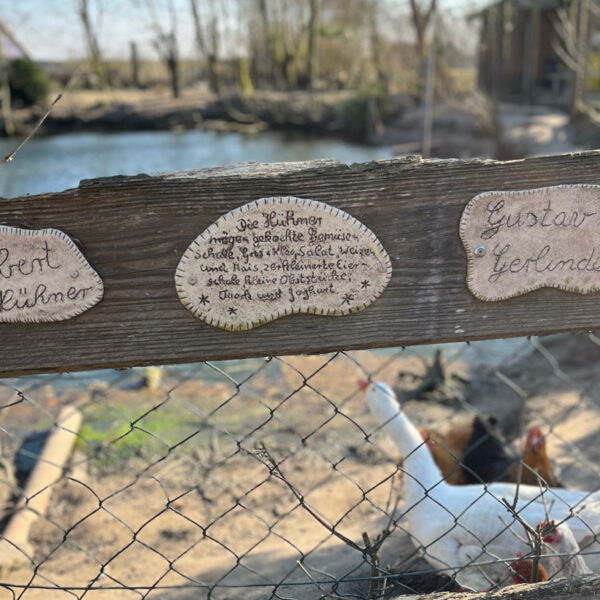 bert
Hühner
Die Hühner
mögen gekochte Gemüse-
schale, Gras, Klee, Salat, Weizen
und Mais, zerkleinerte Eier-
schale, kleine Obststücke,
Quark und Joghurt
Gustav
Gerlinde